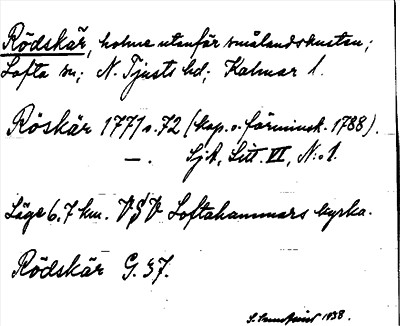 Rödskär, holme utanför smålandskusten;
Lofta sn; N. Tjusts hd; Kalmar l.
Röskär 1771 s. 72 (kop. o. förminsk. 1788).
—. Sjk, Litt. VI, N:o 1.
Läge 6,7 km. VSV Loftahammars kyrka.
Rödskär G. 37.
1938.